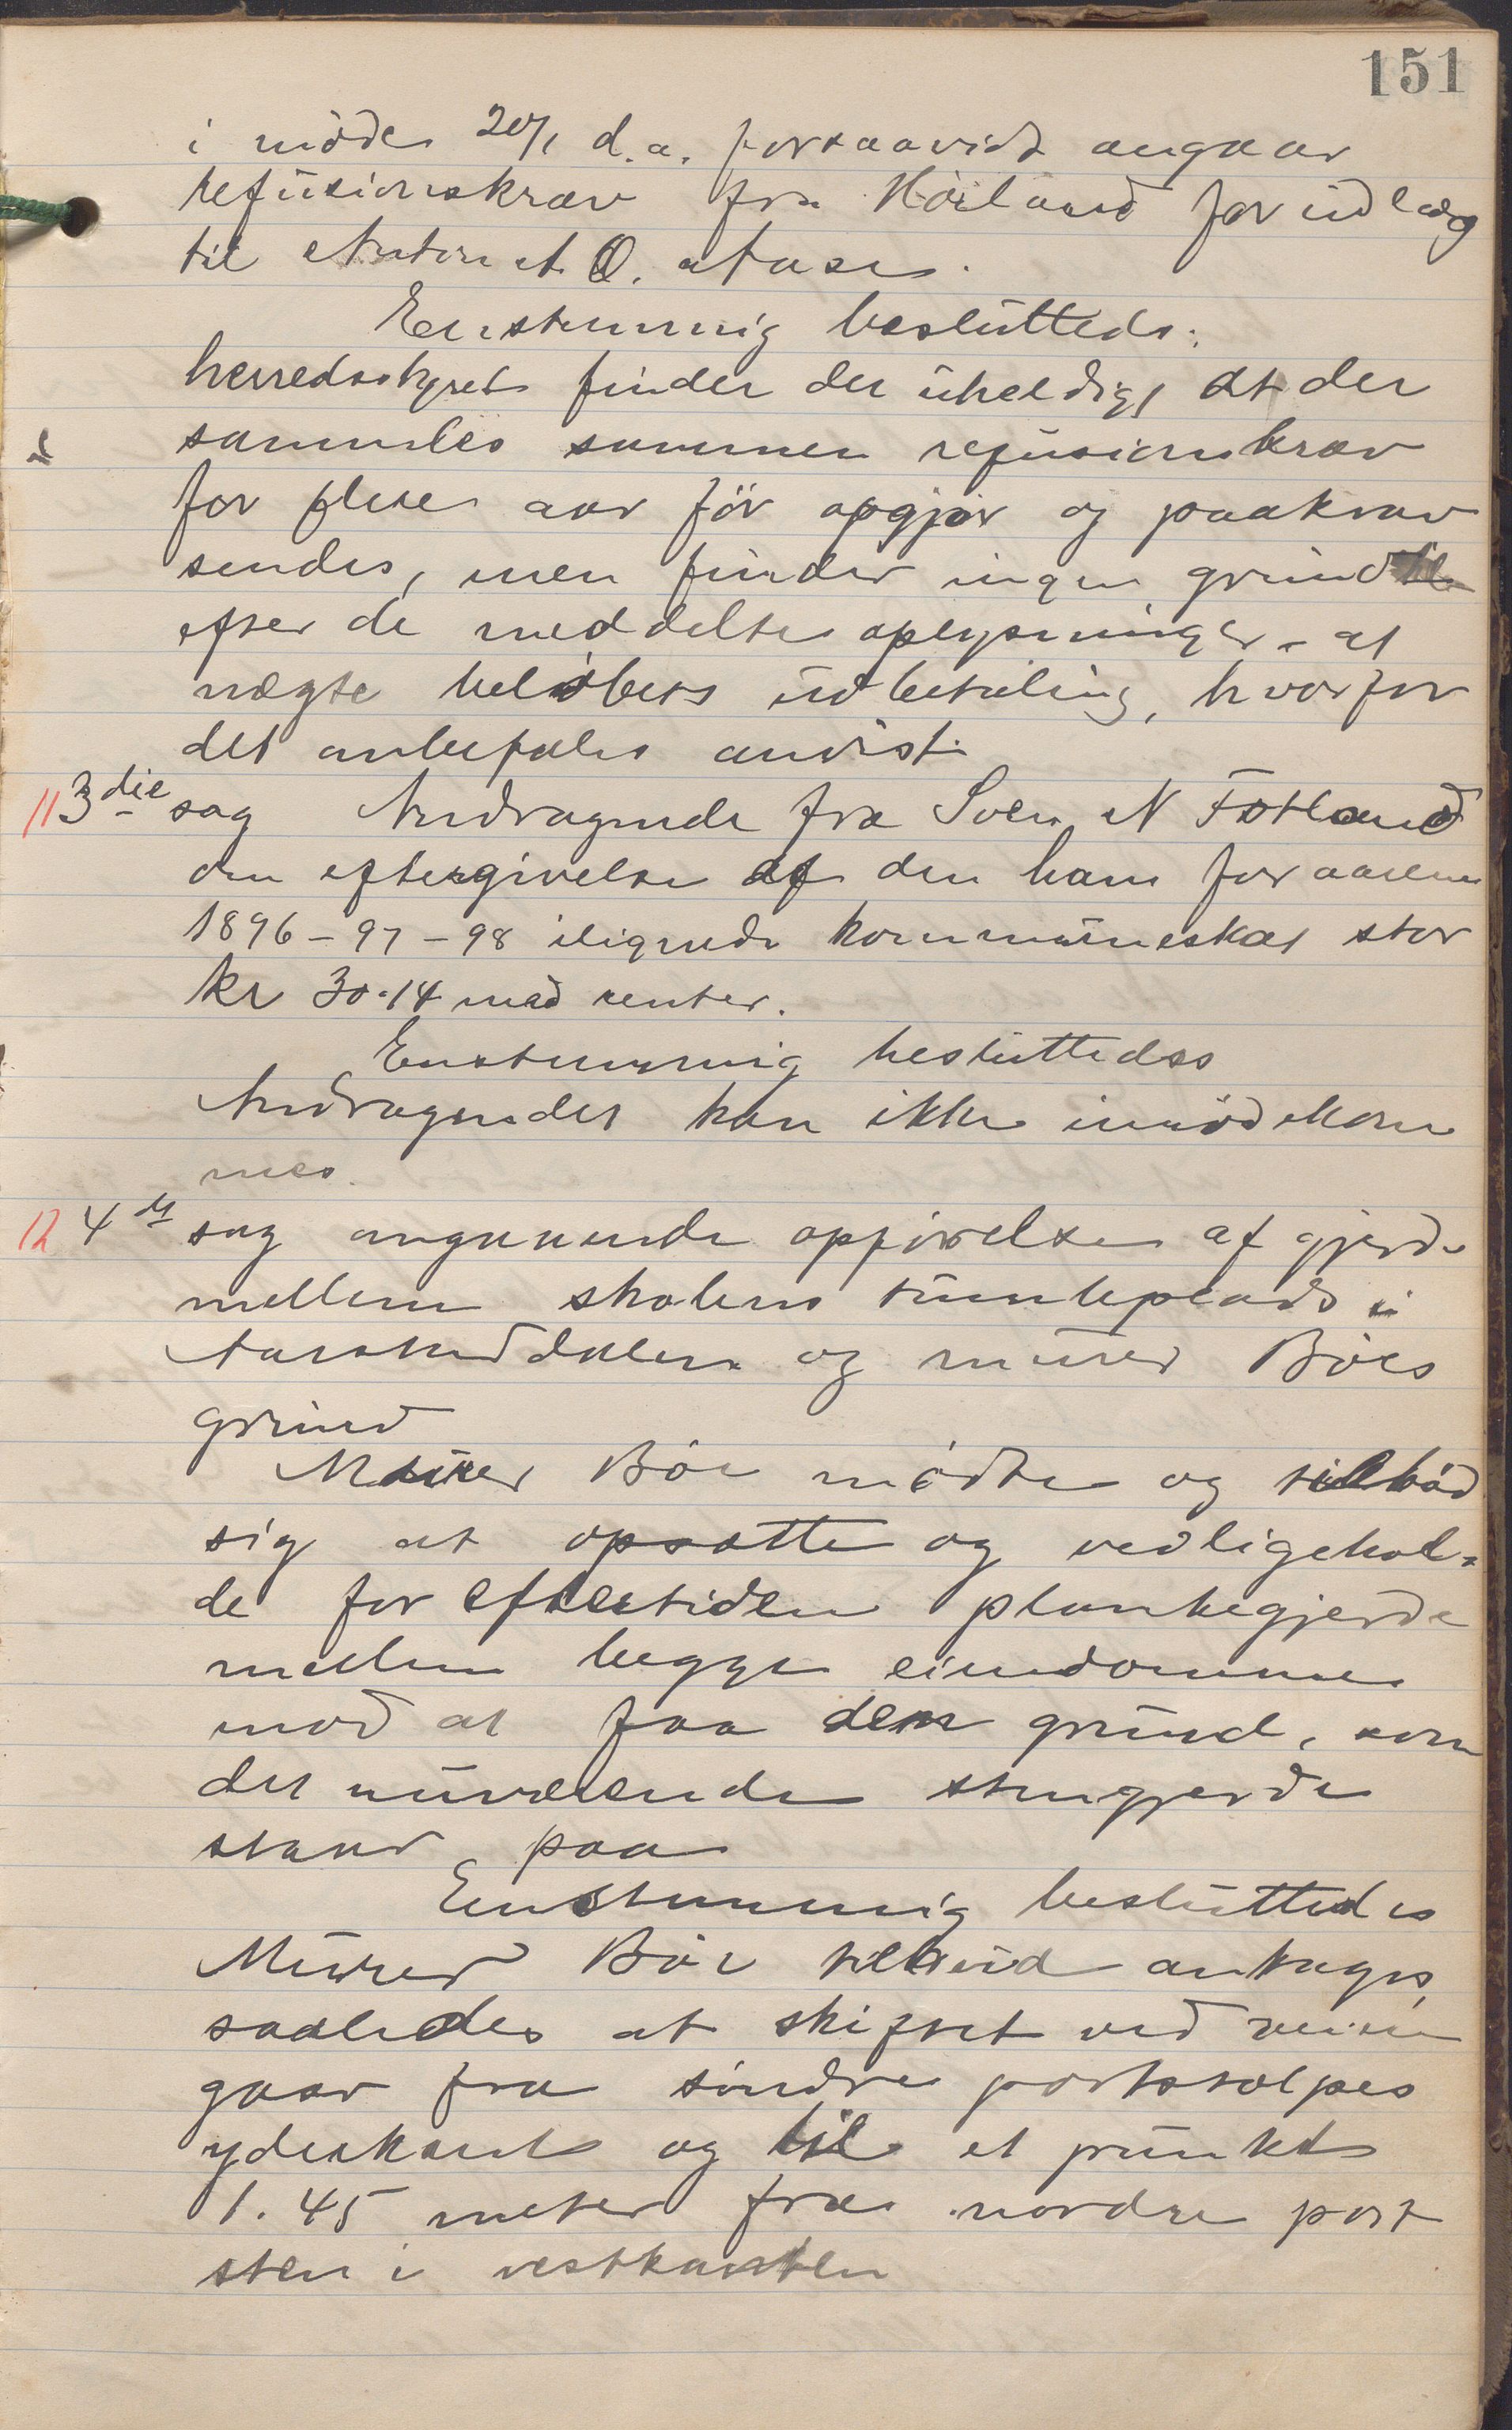 151
i möde 20/1 d.a. forsaavidt angaar
refusionskrav fra Hörland for udlæg
til Anton A. O. Aase.
Enstemmig besluttedes:
herredsstyret finder det uheldigt at der
sammles sammen refusionskrav
for flere aar för opgjör og paakrav
sendes, men finder ingen grund til
efter de meddelte oplysninger - at
nægte belöbets udbetaling, hvorfor
det anbefales anvist.
11 3die sag Andragende fra Sven N Fotland
om eftergivelse af den ham for aarene
1896-97-98 ilignede kommuneskat stor
kr 30.14 med renter.
Enstemmig besluttedes
Andragendet kan ikke imödekom
mes.
12 4de sag angaaende opförelse af gjerde
mellem skolens tumleplads i
og murer Böes
grund
Murer Böe mödte og tilböd
sig at opsætte og vedligehol-
de for eftertiden plankegjerde
mellem begge eiendomme
mod at faa den grund, som
det nuværende stengjerde
staar paa
Enstemmig besluttedes
Murer Böe tilbud antages,
saaledes at skiftet ved veien
gaar fra söndre portstolpes
yderkant og til et punkt
1.45 meter fra nordre port
sten i vestkanten